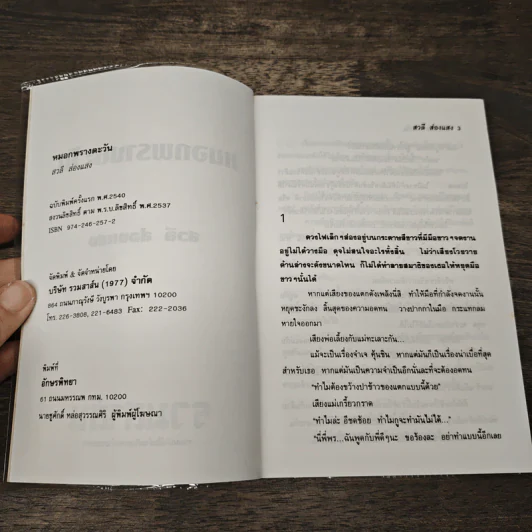 หมอกพรางตะวัน
สวลี ส่องแสง
ฉบับพิมพ์ครั้งแรก พ.ศ.2540
สงวนลิขสิทธิ์ ตาม พ.ร.บ.ลิขสิทธิ์ พ.ศ.2537
ISBN 974-246-257-2
จัดพิมพ์ & จัดจำหน่ายโดย
บริษัท รวมสาส์น (1977) จำกัด
864 ถนนภาณุรังษี วังบูรพา กรุงเทพฯ 10200
โทร. 226-3808, 221-6483 Fax: 222-2036
พิมพ์ที่
อักษรพิทยา
61 ถนนมหรรณพ กทม. 10200
นายชูศักดิ์ หล่อสุวรรณศิริ ผู้พิมพ์ผู้โฆษณา
สวลี ส่องแสง 3
1
ดวงไฟเล็กๆส่องอยู่บนกระดาษสีขาวที่มีมือขาวๆจดจาน
อยู่ไม่ได้วางมือ ดุจไม่สนใจอะไรทั้งสิ้น ไม่ว่าเสียงโวยวาย
ด้านล่างจะดังขนาดไหน ก็ไม่ได้ทำลายสมาธิของเธอให้หยุดมือ
ขาวๆนั้นได้
หากแต่เสียงของแตกดังเพล้งนี่สิ ทำให้มือที่กำลังจดงานนั้น
หยุดชะงักลง สิ้นสุดของความอดทน วางปากกาในมือ กระแทกลม
หายใจออกมา
เสียงพ่อเลี้ยงกับแม่ทะเลาะกัน...
แม้จะเป็นเรื่องจำเจ คุ้นชิน หากแต่มันก็เป็นเรื่องน่าเบื่อที่สุด
สำหรับเธอ หากแต่มันเป็นความจำเป็นอีกนั่นละที่จะต้องอดทน
"ทำไมต้องขว้างปาข้าวของแตกแบบนี้ด้วย"
เสียงแม่เกรี้ยวกราด
"ทำไมล่ะ อีชดช้อย ทำไมกูจะทำมันไม่ได้..."
"นี่พี่พร...ฉันพูดกับพี่ดีๆนะ ขอร้องละ อย่าทำแบบนี้อีกเลย